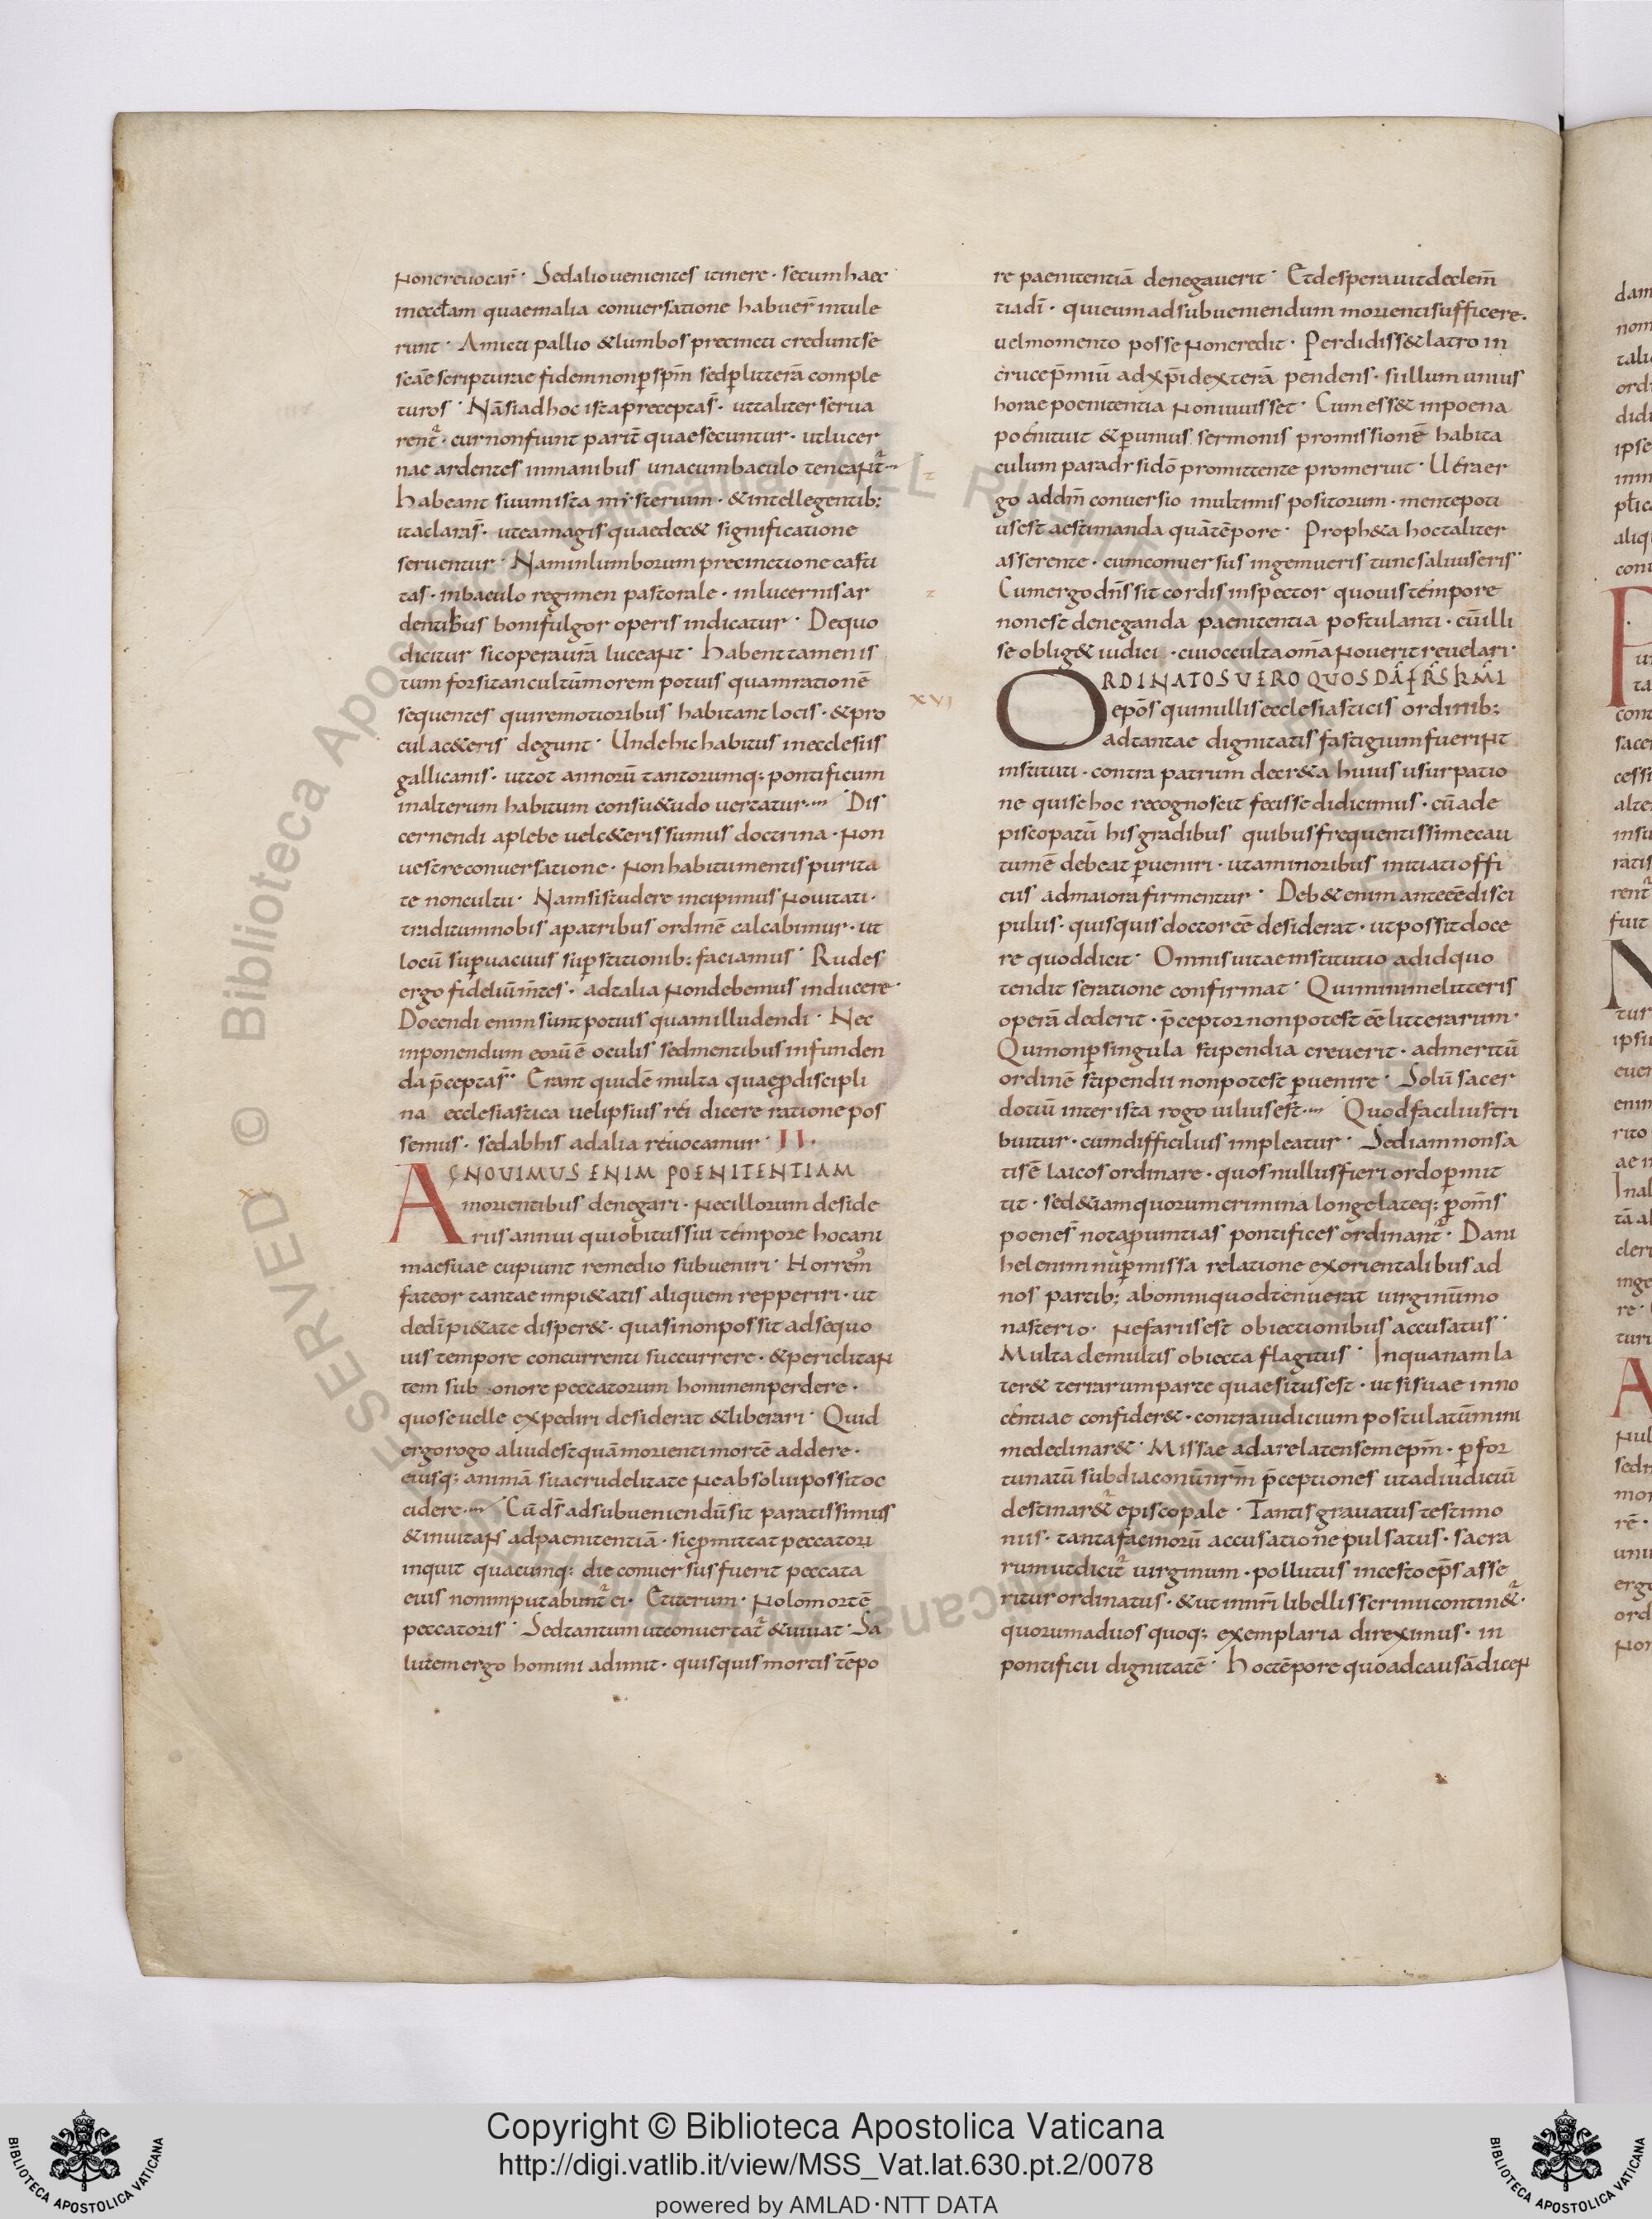 Noncrevocar̄· Sedalio venientes itinere· secum haec
ineccłam quaemalia conversatione habuer̄ intule
runt· Amicti pallio &lumbos precincti creduntse
scāe scripturae fidem nonp̱ sp̄m sedp̱ litterā comple
turos· Nāsiadhoc istapreceptas̄· uttaliter serva
rent᷑· curnonfiunt parit̄ quaesecuntur· utlucer
nae ardentes inmanibus unacumbaculo teneant᷑·
habeant suumista mysterium· &intellegentib;
itaclaras̄· uteamagis quaedec& significatione
serventur· Naminlumborum precinctione casti
tas· inbaculo regimen pastorale· inlucernis ar
dentibus bonifulgor operis indicatur· Dequo
dicitur sicoperaurā luceant· habenttamen is
tum forsitan cultūmorem potius quamrationē
sequentes quiremotioribus habitant locis· &pro
culac&eris degunt· Undehichabitus inecclesiis
gallicanis· uttot annorū tantorumq; pontificum
inalterum habitum consu&udo vertatur· Dis
cernendi aplebe velc&erissumus doctrina· Non
vestreconversatione· Nonhabitumentispurita
te noncultu· Namsistudere incipimus Novitati·
traditumnobis apatribus ordinē calcabimur· ut
locū sup̱vacuus sup̱stitionib; faciamus· Rudes
ergo fideliūm̄tes· adtalia Nondebemus inducere·
Docendi enim suntpotius quamilludendi· Nec
inponendum eorūē oculis sedmentibus infunden
da p̄ceptas̄· Erant quidē multa quaep̱discipli
na ecclesiastica velipsius rei dicere ratione pos
semus· sedabhis adalia revocamur· II·
AGNOVIMUS ENIM POENITENTIAM
morientibus denegari· Necillorum deside
riis annui quiobitussui tempore hocani
maesuae cupiunt remedio subveniri· Horrem᷒
fateor tantae impi&atis aliquem repperiri· ut
dedīpi&ate disper&· quasinonpossit adsequo
vis tempore concurrenti succurrere· &periclitan
tem sub onore peccatorum hominemperdere·
quosevelle expediri desiderat &liberari· Quid
ergorogo aliudestquāmorienti mortē addere·
eiusq; animā suacrudelitate Neabsolvipossit oc
cidere· Cūds̄ adsubveniendūsit paratissimus
&invitans adpaenitentiā· sicp̱mittat peccatori
inquit quacumq; die conversusfuerit peccata
eius nonimputabunt᷑ ei· Etiterum· Nolomortē
peccatoris· Sedtantum utconvertat᷑ &vivat· Sa
lutemergo homini adimit· quisquis mortis tēpo
re paenitentiā denegaverit· Etdesperavitdeclem̄
tiadī· quieumadsubveniendum morientisufficere·
velmomento posse Noncredit· Perdidiss&latro in
cruce p̄miū adxp̄i dexterā pendens· siillum unius
horae poenitentia Noniuvisset· Cumess& inpoena
poenituit &p̱unius sermonis promissionē habita
culum paradisidō promittente promeruit· Veraer
go addm̄ conversio inultimis positorum· mentepoti
usest aestimanda quātēpore· Proph&a hoctaliter
asserente· cumconversus ingemueris tuncsalvuseris·
Cumergodn̄s sit cordis inspector quovistempore
nonest deneganda paenitentia postulanti· cūilli
se oblig& iudici· cuiocculta om̄a Noverit revelari·
XVI
ORDINATOS VERO QUOSDĀ FR̄S KR̄MI
epōs quinullisecclesiasticis ordinib;
adtantae dignitatis fastigiumfuerint
instituti· contra patrum decr&a huius usurpatio
ne quisehoc recognoscit fecisse didicimus· cūade
piscopatū his gradibus quibusfrequentissimecau
tumē debeat p̱veniri· utaminoribus initiatioffi
ciis admaiora firmentur· Deb&enim anteēēdisci
pulus· quisquis doctorēē desiderat· utpossitdoce
re quoddicit· Omnis vitaeinstitutio adidquo
tendit seratione confirmat· Quiminimelitteris
operā dederit· p̄ceptor nonpotest ēē litterarum·
Quinonp̱singula stipendia creverit· admeritū
ordinē stipendii nonpotest p̱venire· Solū sacer
dotiū inter ista rogo viliusest· Quodfaciliustri
buitur· cumdifficilius impleatur· Sediamnonsa
tisē laicos ordinare· quosnullusfieri ordop̱mit
tit· sed&iamquorumcrimina longelateq; p̱om̄s
poenes̄ notap̱vintias pontifices ordinant᷑· Dani
helenimnup̱missa relatione exorientalibus ad
nos partib; abomniquodtenuerat virginūmo
nasterio· Nefariisest obiectionibus accusatus·
Multa demultis obiecta flagitiis· Inquanamla
ter& terrarumparte quaesitusest· utsisuae inno
centiae confider&· contraiudicium postulatūmini
medeclinar&· Missae adarelatensem ep̄m· p̱ for
tunatū subdiaconūnr̄m p̄ceptiones utadiudiciū
destinar&᷑ episcopale· Tantis gravatus testimo
niis· tantafacinorū accusatione pulsatus· sacra
rumutdicit᷑ virginum· pollutus incesto ep̄s asse
ritur ordinatus· &utinnr̄i libellisscriniicontin&᷑·
quorumadvos quoq; exemplaria direximus· in
pontificii dignitatē· hoctēpore quoadcausādicen
Copyright © Biblioteca Apostolica Vaticana
http://digi.vatlib.it/view/MSS_Vat.lat.630.pt.2/0078
powered by AMLAD·NTT DATA
BIBLIOTECA APOSTOLICA VATICANA
BIBLIOTECA APOSTOLICA VATICANA